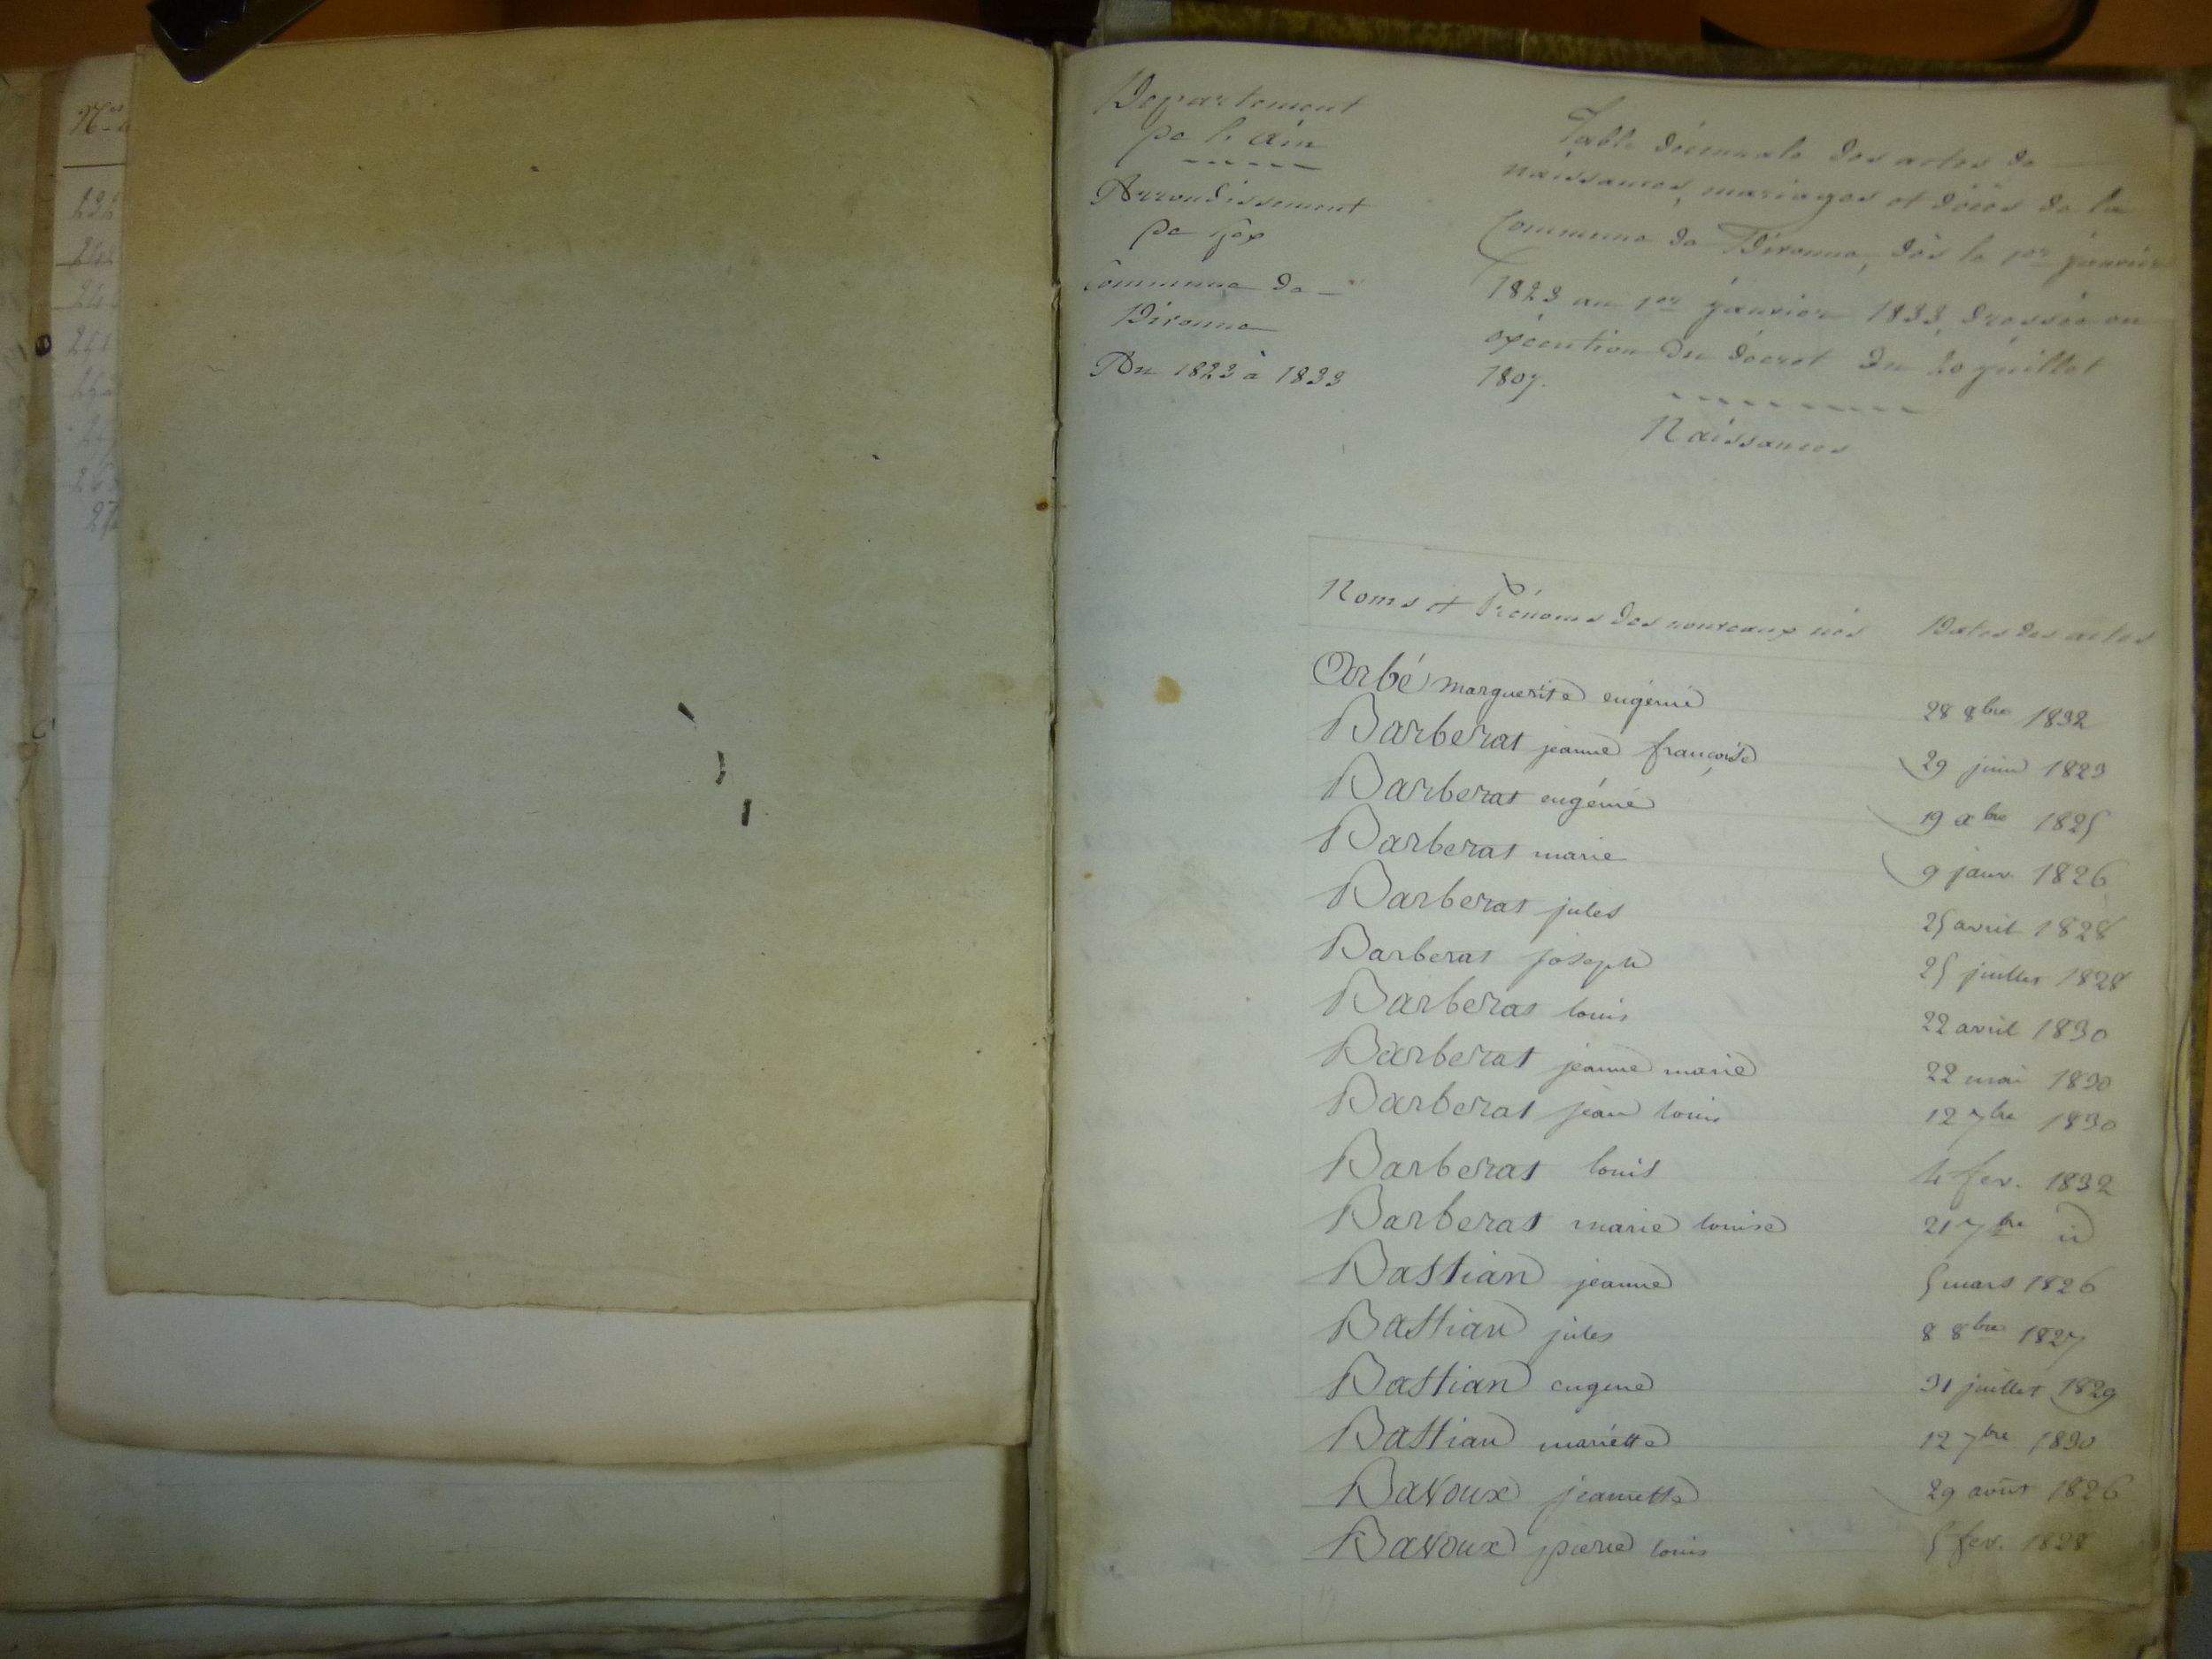 Departement
de l'Ain
Arrondissement
de Gex
Commune de
Divonne
An 1823 à 1833
Table décennale des actes de
naissances, mariages et décès de la
Commune de Divonne, dès le 1er janvier
1823 au 1er janvier 1833, dressée en
exécution du décret du 20 juillet
1807.
Naissances
Noms et Prénoms des nouveaux nés Dates des actes
Orbé marguerite eugénie 28 8bre 1832
Barberat jeanne françoise 29 juin 1823
Barberat eugénie 19 xbre 1825
Barberat marie 9 janv. 1826
Barberat jules 25 avril 1828
Barberat joseph 25 juillet 1828
Barberat louis 22 avril 1830
Barberat jeanne marie 22 mai 1830
Barberat jean louis 12 7bre 1830
Barberat louis 4 fev. 1832
Barberat marie louise 21 7bre id
Bastian jeanne 5 mars 1826
Bastian jules 8 8bre 1827
Bastian eugene 31 juillet 1829
Bastian mariette 12 7bre 1830
Bavoux jeannette 29 août 1826
Bavoux pierre louis 5 fev. 1828